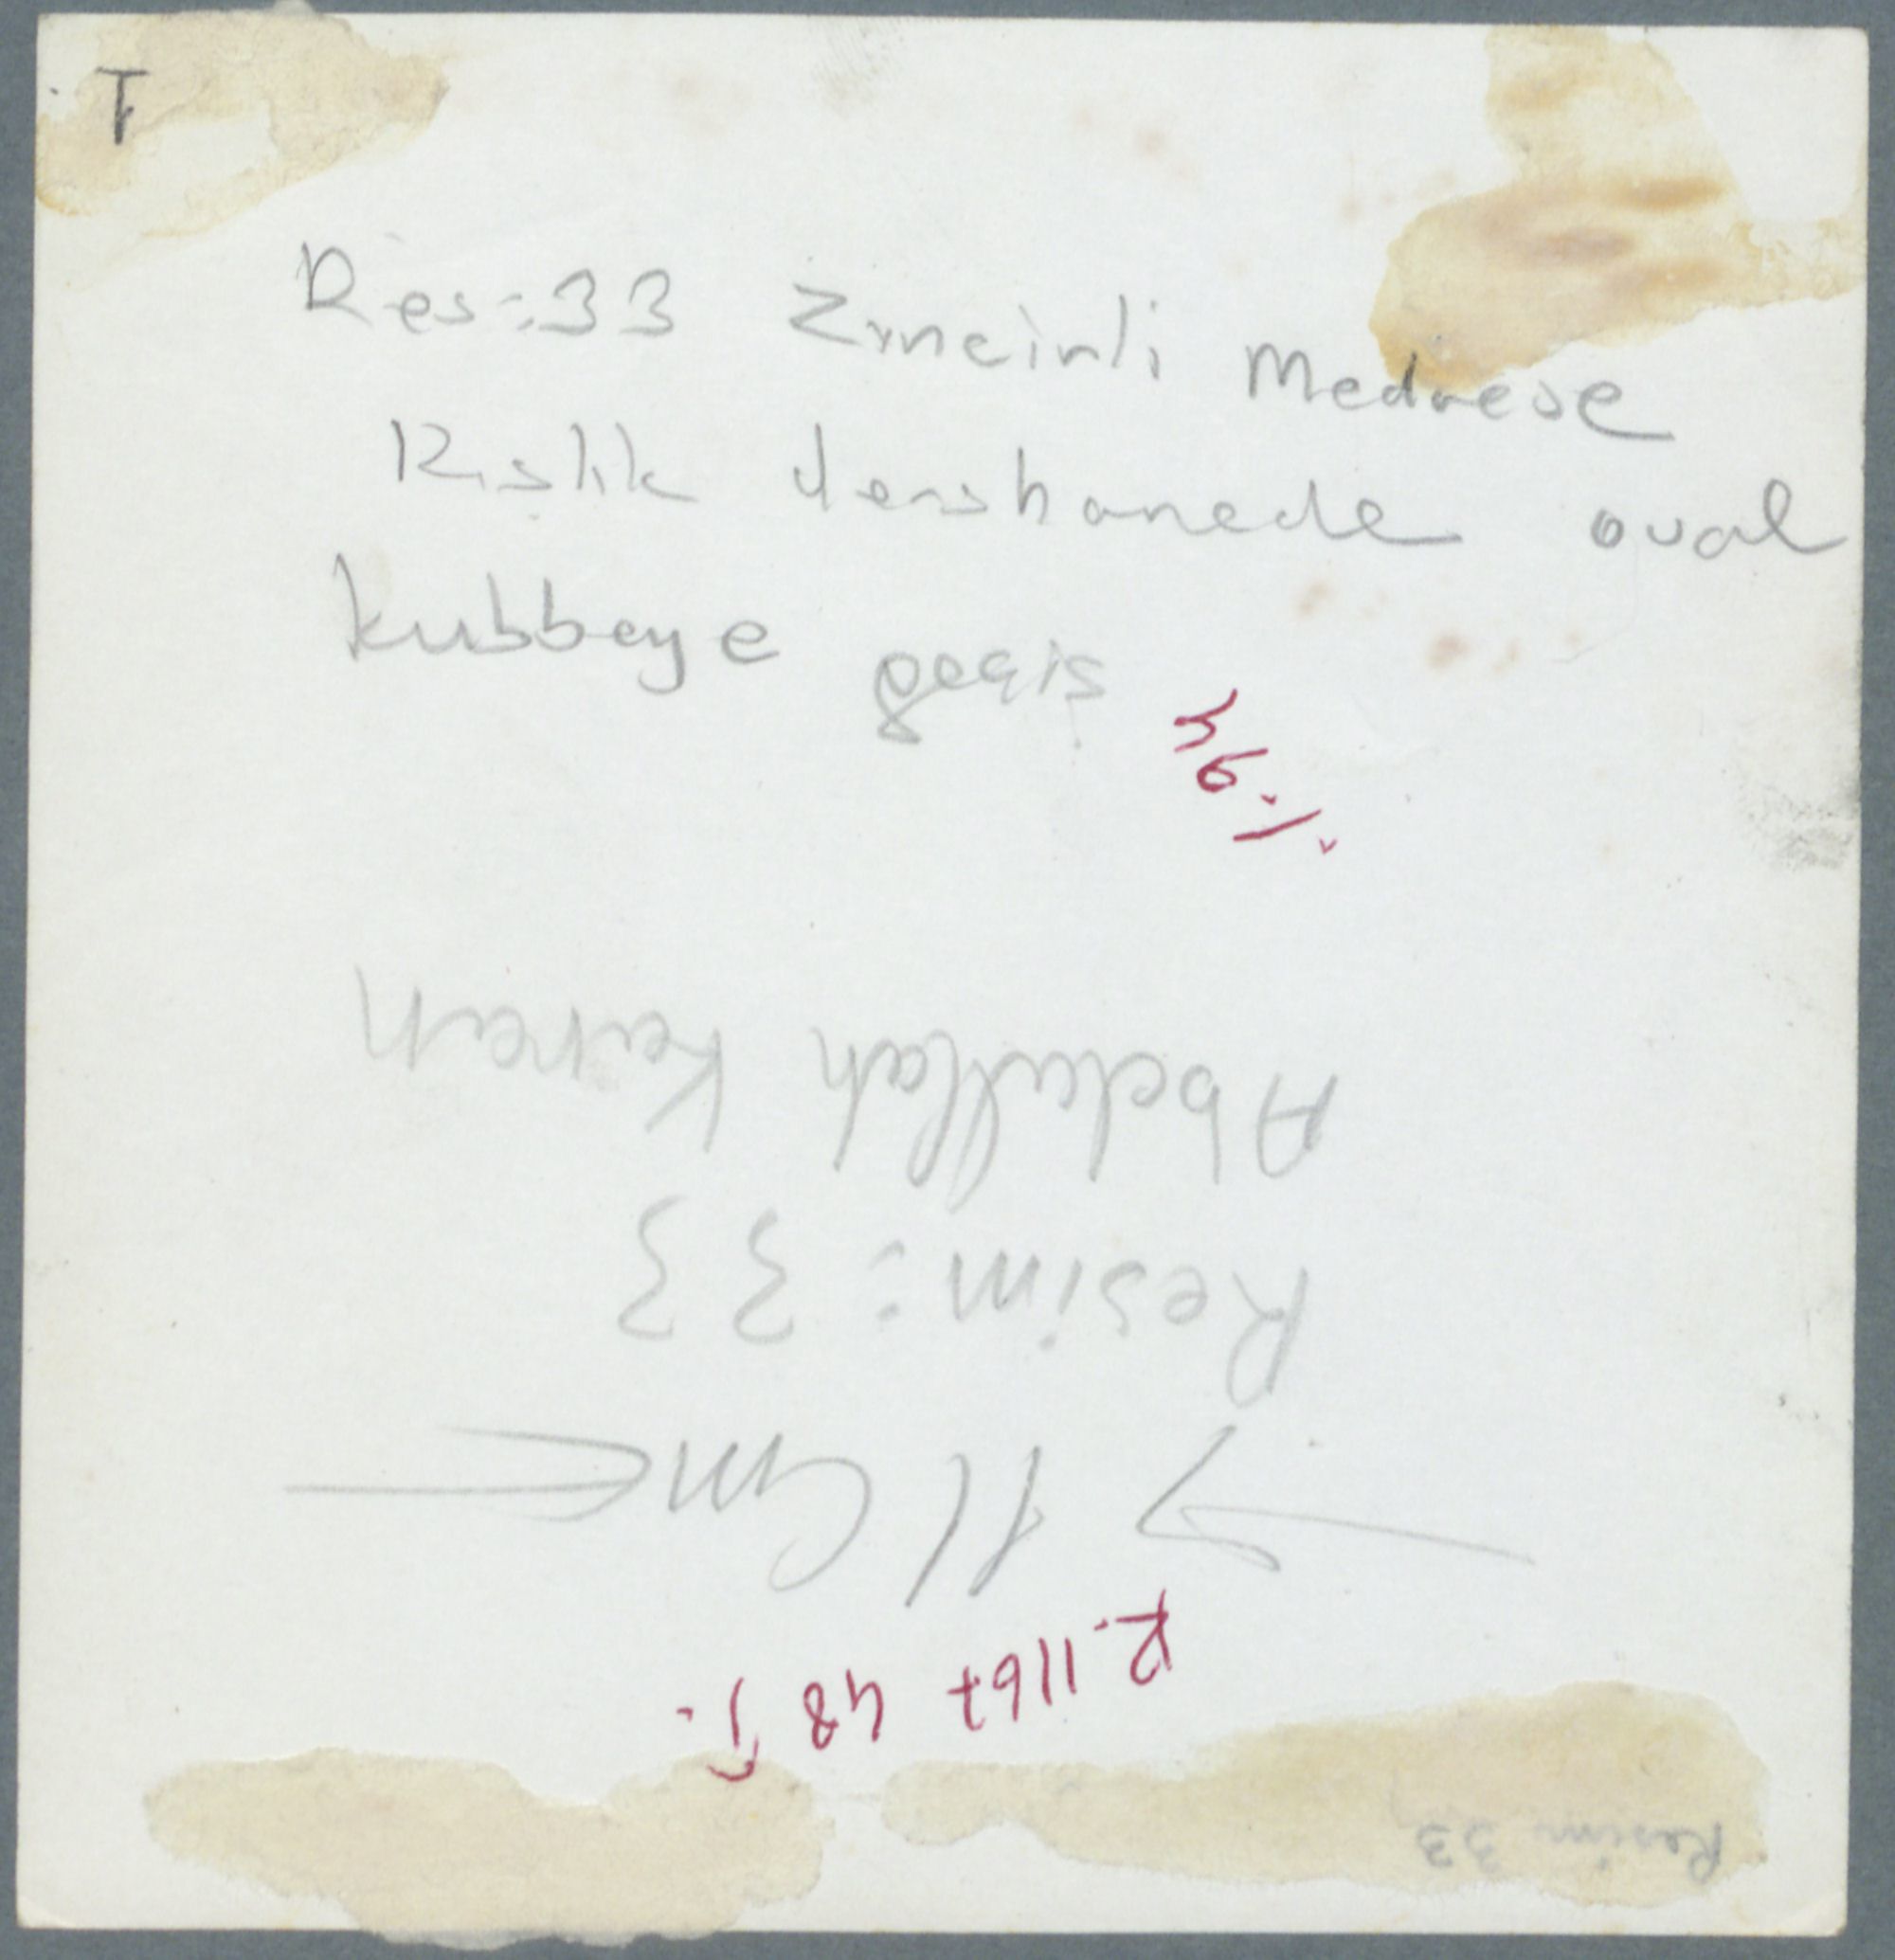 T
Res:33 Zıncirli Medrese
Kışlık dershanede oval
kubbeye geçiş
Abdullah Kuran
Resim: 33
11 Cm
R.1167 48 J.
Resim 33